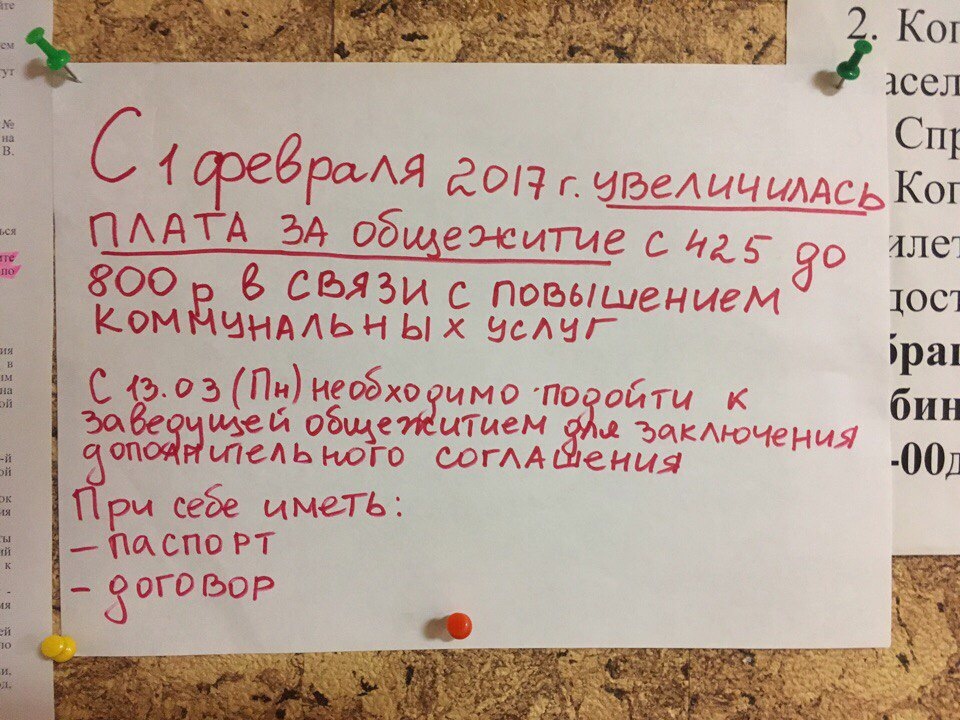 С 1 февраля 2017 г. УВЕЛИЧИЛАСЬ
ПЛАТА ЗА общежитие с 425 до
800 р в связи с повышением
коммунальных услуг
С 13.03 (Пн) необходимо подойти к
заведущей общежитием для заключения
дополнительного соглашения
При себе иметь:
- паспорт
- договор
2. Ког
асел
Спр
Ког
илет
дост
бра
бин
-00д